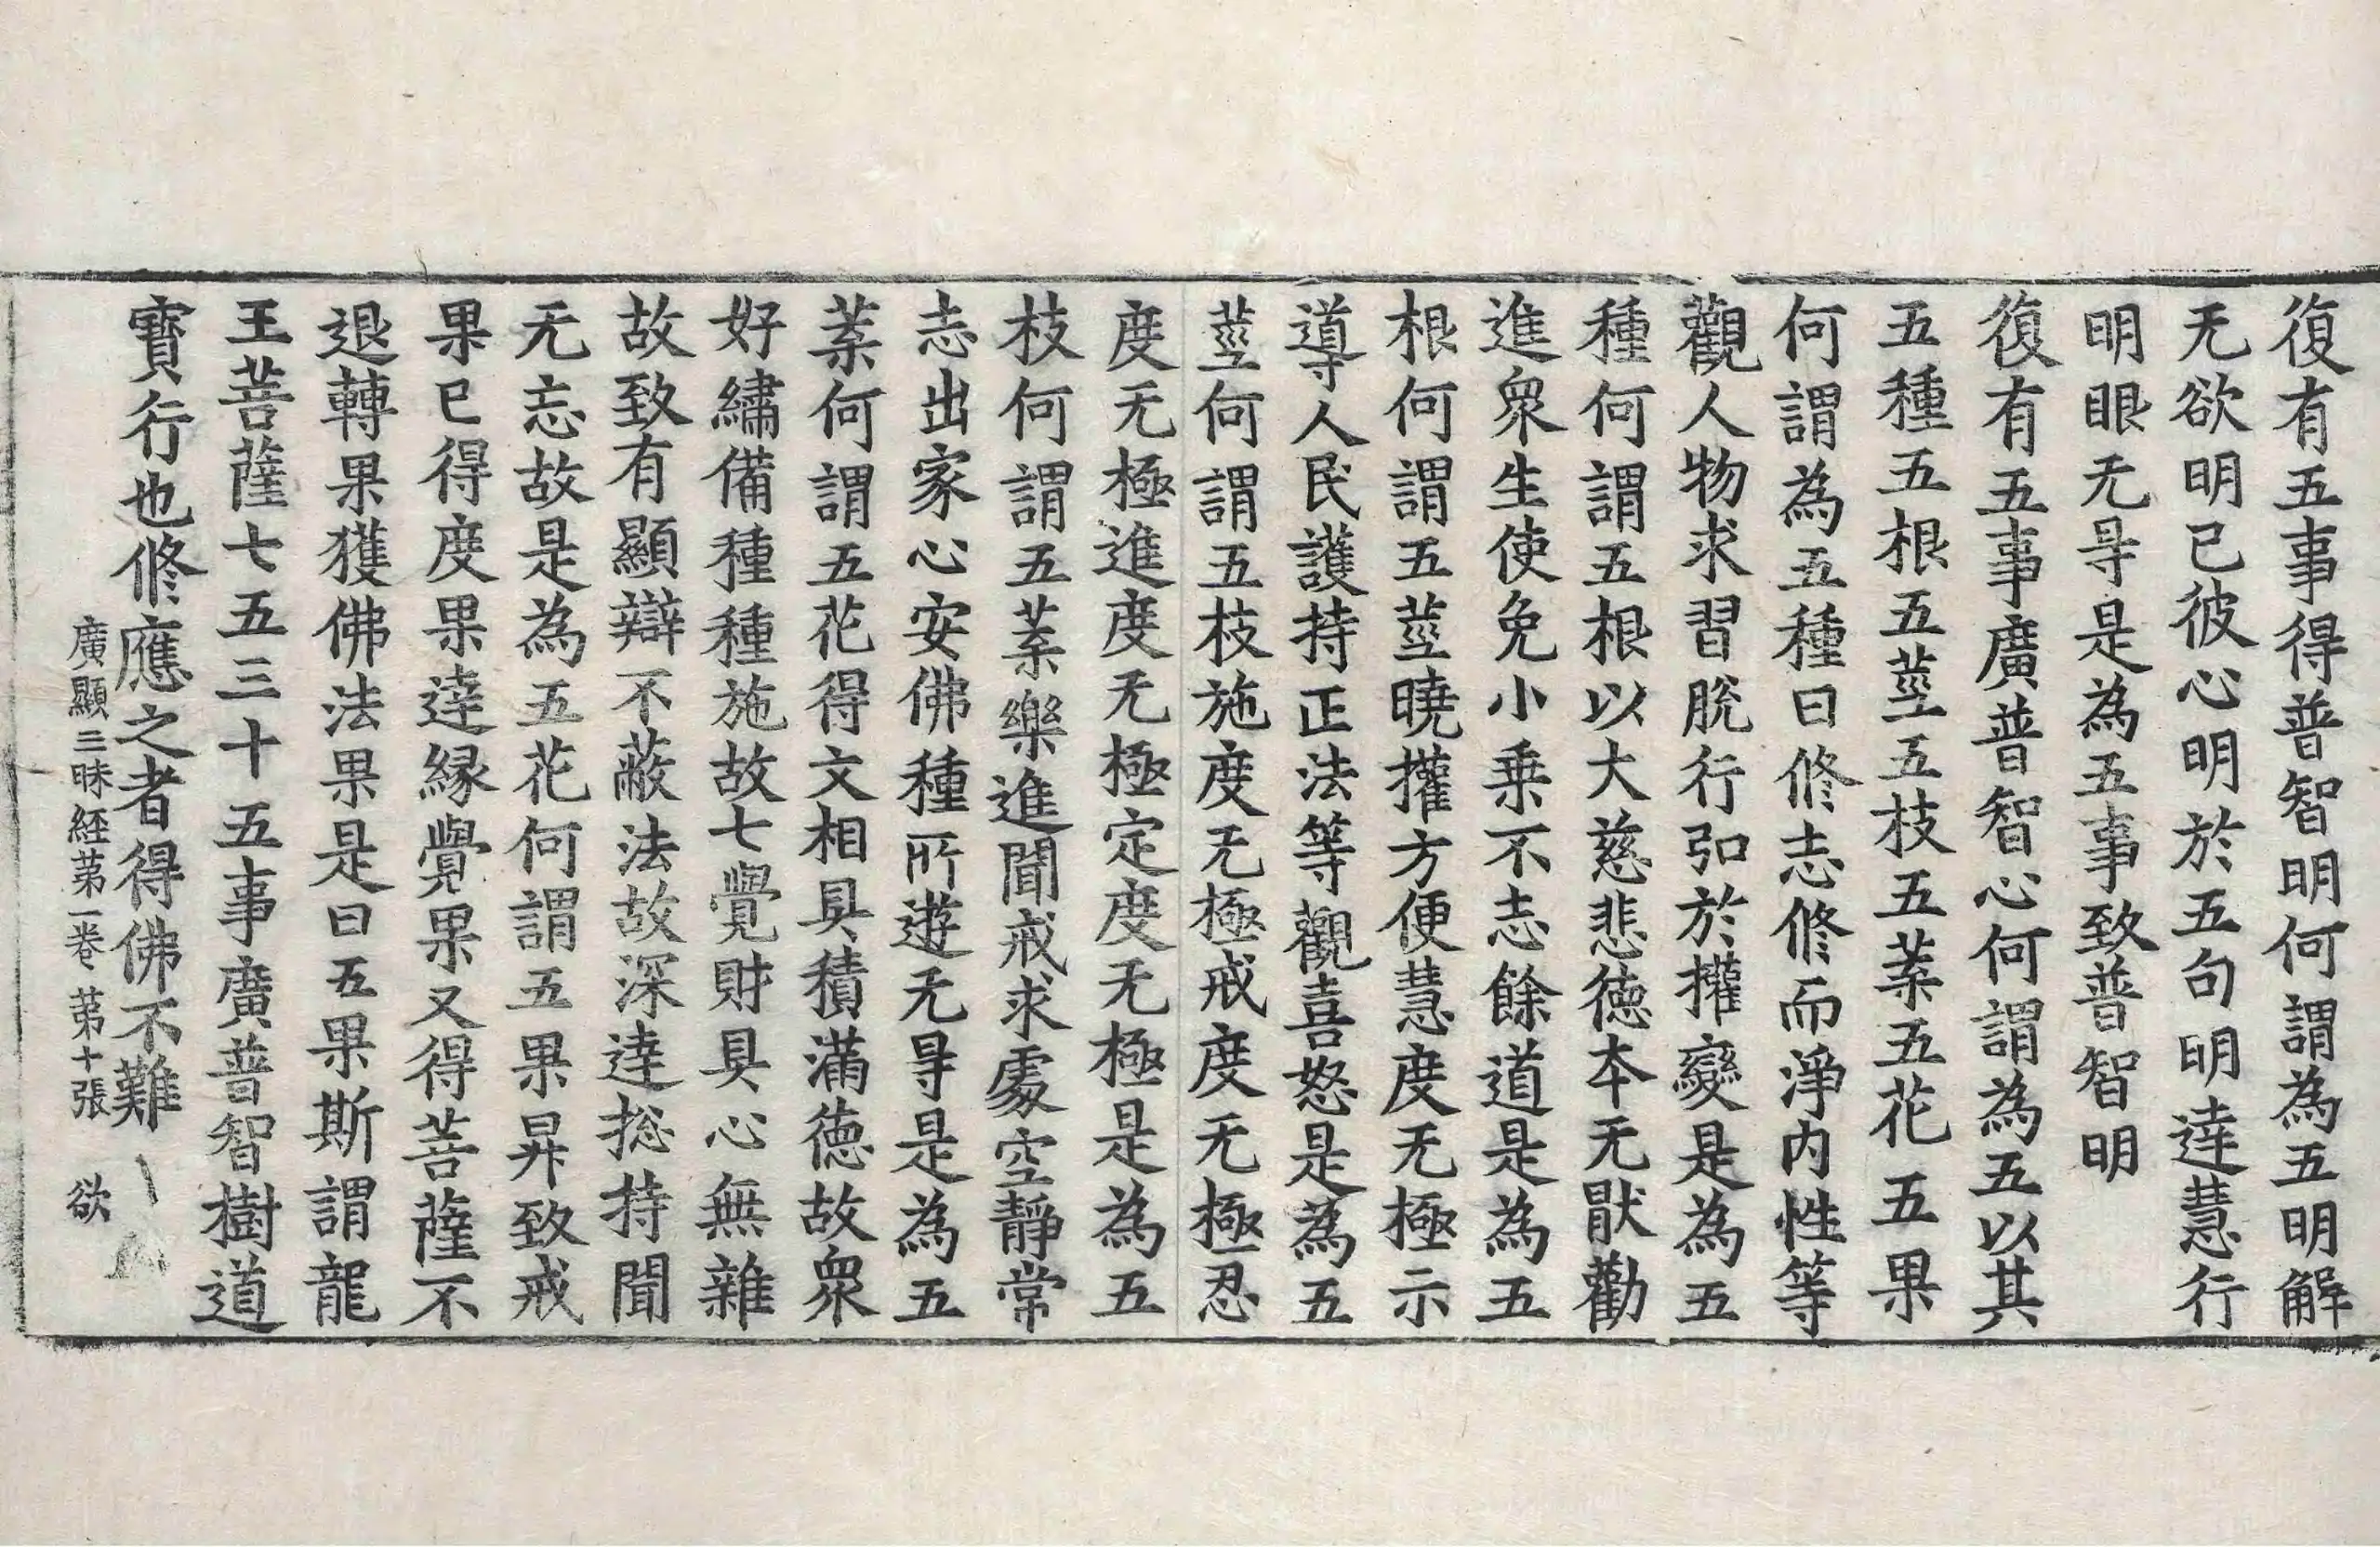 復有五事得普智明何謂為五明解
无欲明已彼心明於五句明達慧行
明眼无㝵是為五事致普智明
復有五事廣普智心何謂為五以其
五種五根五莖五枝五葉五花五果
何謂為五種曰修志修而淨内性等
觀人物求習脫行弘於攉變是為五
種何謂五根以大慈悲德夲无猒勸
進衆生使免小乗不志餘道是為五
根何謂五莖曉攉方便慧度无極示
導人民護持正法等觀喜怒是為五
莖何謂五枝施度无極戒度无極忍
度无極進度无極定度无極是為五
枝何謂五葉樂進聞戒求處空静常
志出家心安佛種所遊无㝵是為五
葉何謂五花得文相具積滿德故衆
好繡備種種施故七覺財具心無雜
故致有顯辯不蔽法故深達捴持聞
无忘故是為五花何謂五果昇致戒
果已得度果逹縁覺果又得菩薩不
退轉果獲佛法果是曰五果斯謂龍
王菩薩七五三十五事廣普智樹道
寳行也修應之者得佛不難
廣顯三昧経苐一卷 苐十張 欲